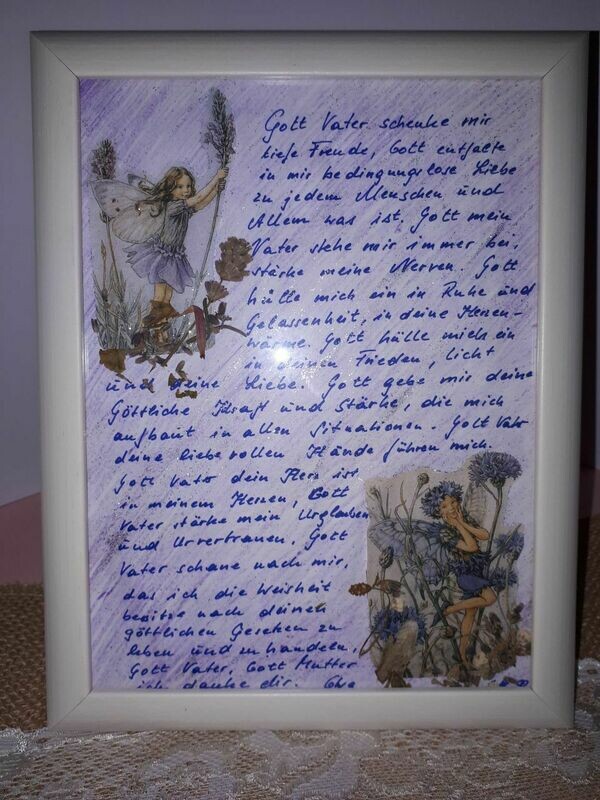 Gott Vater schenke mir
tiefe Freude, Gott entfalte
in mir bedingungslose Liebe
zu jedem Menschen und
Allem was ist. Gott mein
Vater stehe mir immer bei,
stärke meine Nerven. Gott
hülle mich ein in Ruhe und
Gelassenheit, in deine Herzen-
wärme. Gott hülle mich ein
in deinen Frieden, licht
und deine Liebe. Gott gebe mir deine
Göttliche Kraft und Stärke, die mich
aufbaut in allen Situationen. Gott Vater
deine liebevollen Hände führen mich.
Gott Vater dein Herz ist
in meinem Herzen, Gott
Vater stärke mein Urglauben
und Urvertrauen, Gott
Vater schaue nach mir,
das ich die Weisheit
besitze nach deinen
göttlichen Gesetzen zu
leben und zu handeln,
Gott Vater, Gott Mutter
ich danke dir.